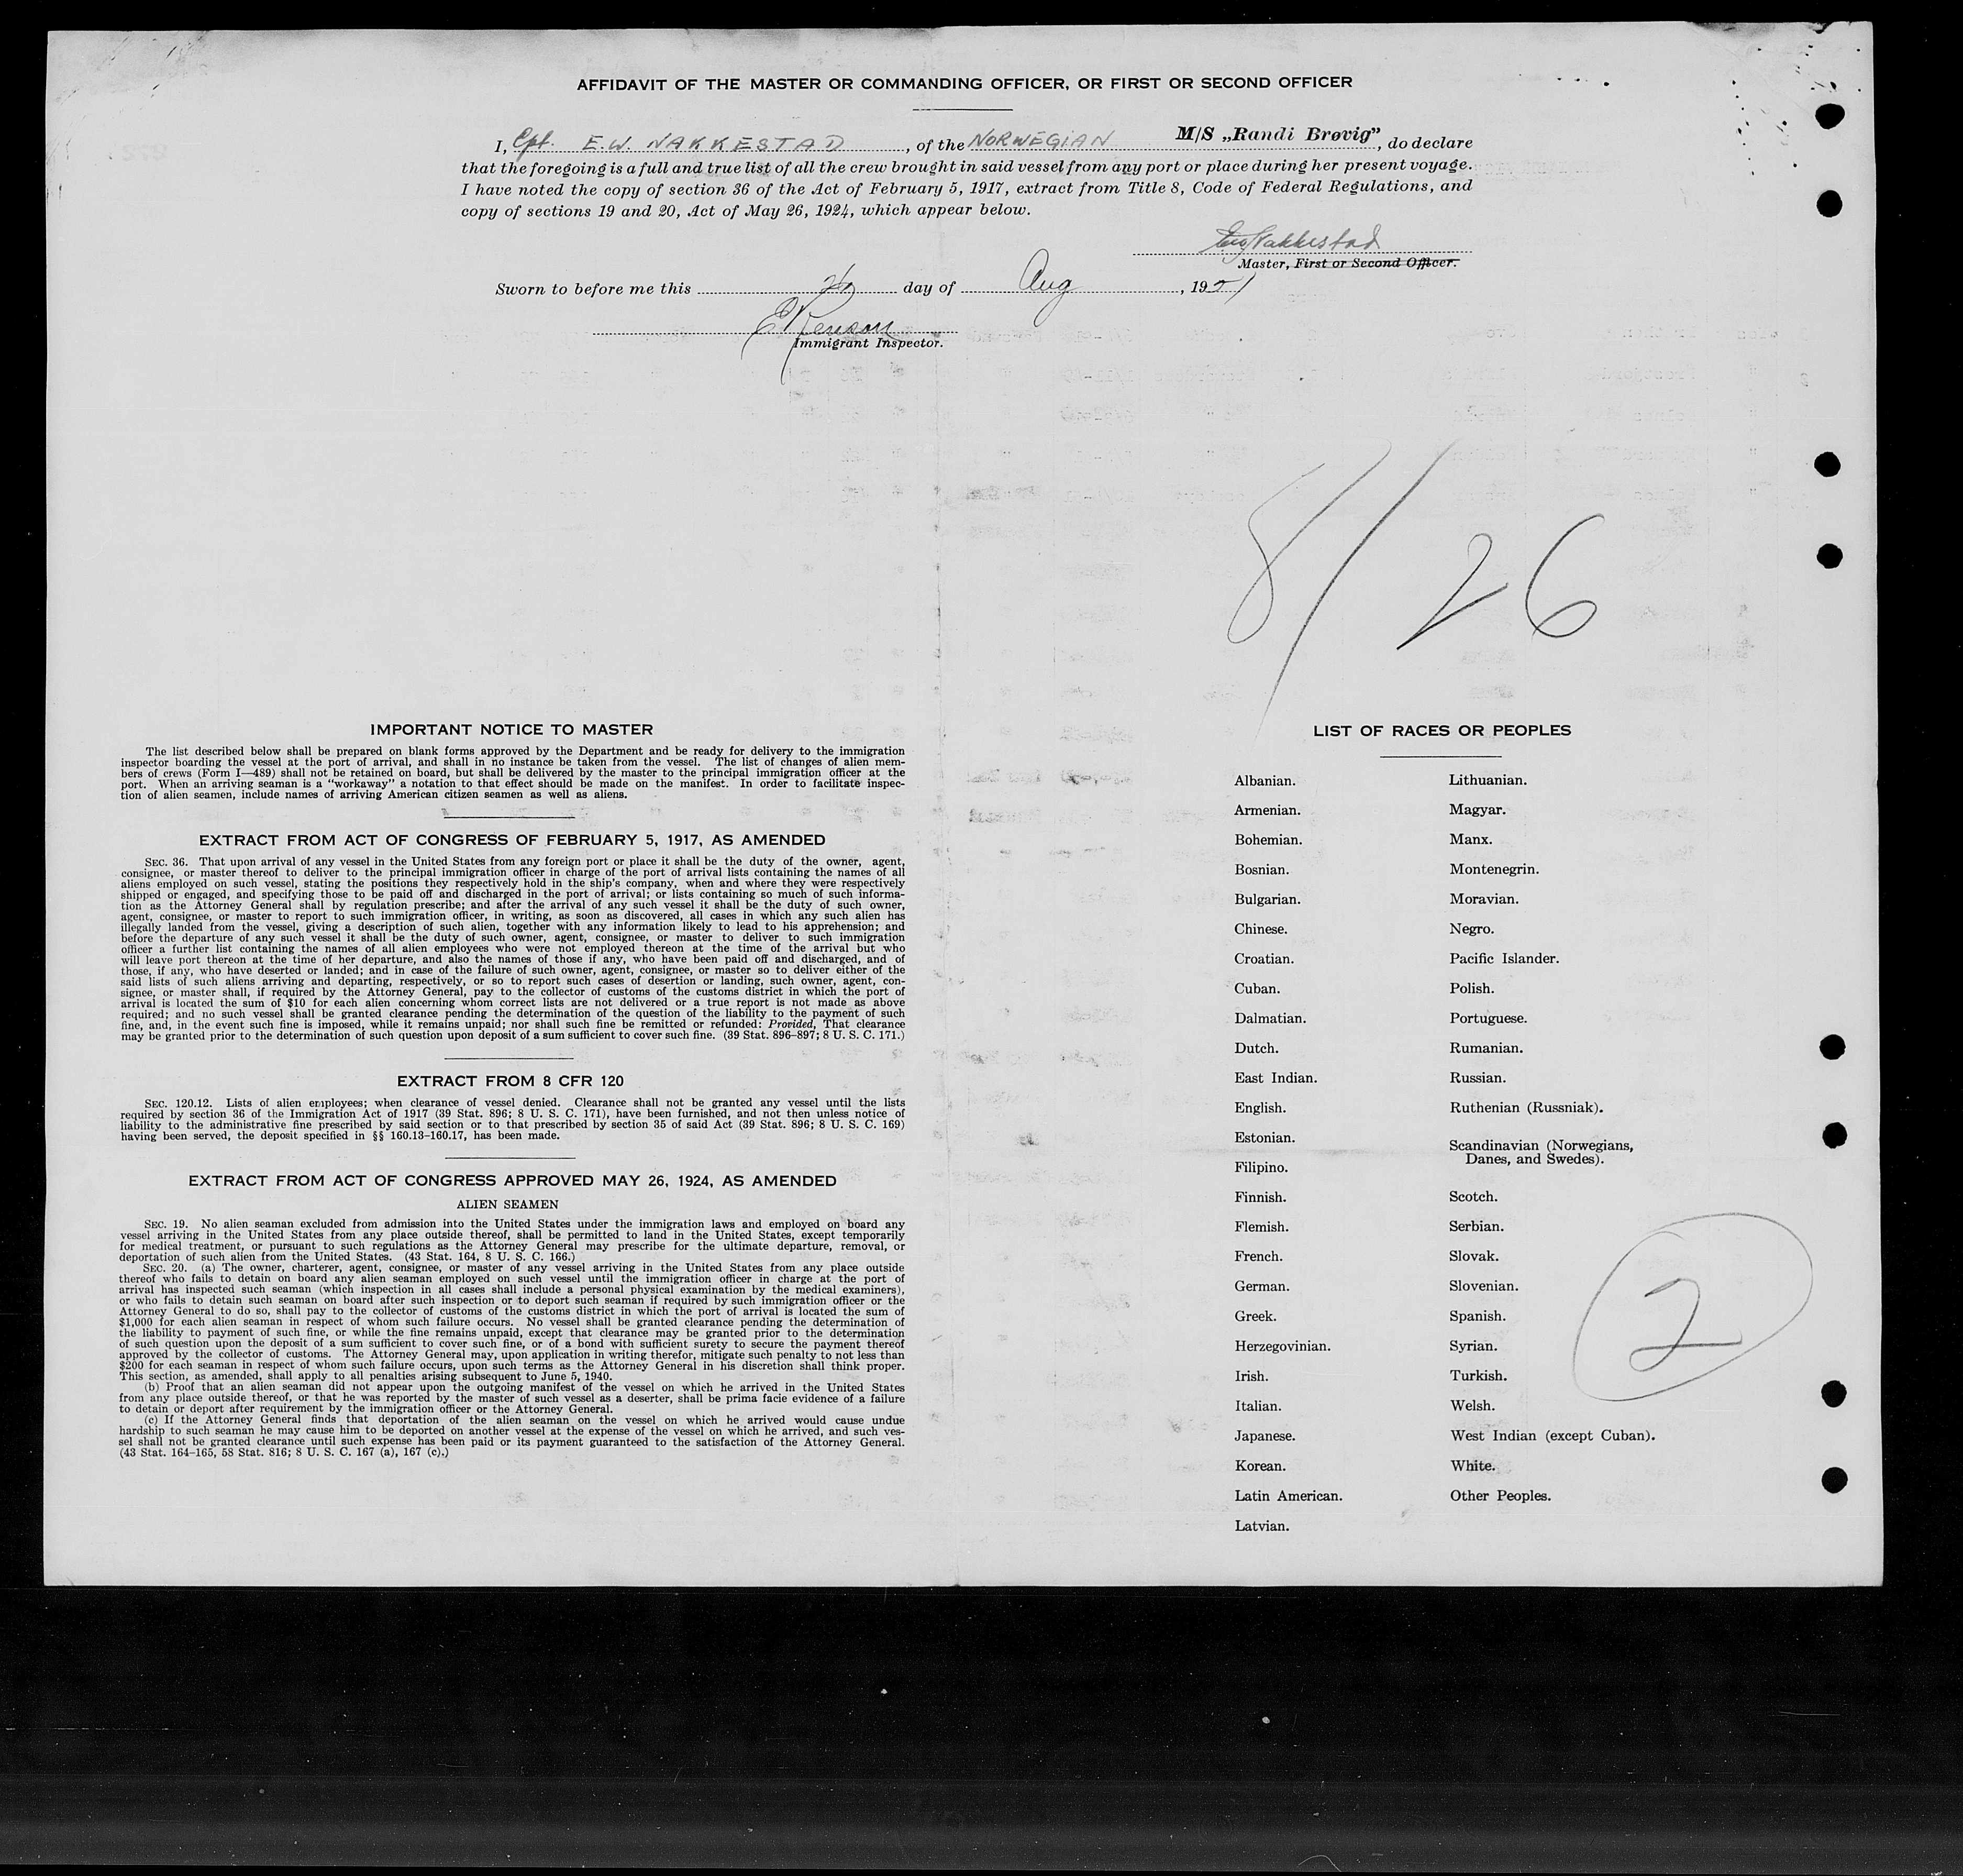 AFFIDAVIT OF THE MASTER OR COMMANDING OFFICER, OR FIRST OR SECOND OFFICER
I, Cpt. E.W. NAKKESTAD, of the NORWEGIAN M/S „Randi Brøvig”, do declare
that the foregoing is a full and true list of all the crew brought in said vessel from any port or place during her present voyage.
I have noted the copy of section 36 of the Act of February 5, 1917, extract from Title 8, Code of Federal Regulations, and
copy of sections 19 and 20, Act of May 26, 1924, which appear below.
Nakkestad
Master, First or Second Officer.
Sworn to before me this 26 day of Aug, 1951
Immigrant Inspector.
8/26
IMPORTANT NOTICE TO MASTER
The list described below shall be prepared on blank forms approved by the Department and be ready for delivery to the immigration
inspector boarding the vessel at the port of arrival, and shall in no instance be taken from the vessel. The list of changes of alien mem-
bers of crews (Form I—489) shall not be retained on board, but shall be delivered by the master to the principal immigration officer at the
port. When an arriving seaman is a “workaway” a notation to that effect should be made on the manifest. In order to facilitate inspec-
tion of alien seamen, include names of arriving American citizen seamen as well as aliens.
EXTRACT FROM ACT OF CONGRESS OF FEBRUARY 5, 1917, AS AMENDED
SEC. 36. That upon arrival of any vessel in the United States from any foreign port or place it shall be the duty of the owner, agent,
consignee, or master thereof to deliver to the principal immigration officer in charge of the port of arrival lists containing the names of all
aliens employed on such vessel, stating the positions they respectively hold in the ship's company, when and where they were respectively
shipped or engaged, and specifying those to be paid off and discharged in the port of arrival; or lists containing so much of such informa-
tion as the Attorney General shall by regulation prescribe; and after the arrival of any such vessel it shall be the duty of such owner,
agent, consignee, or master to report to such immigration officer, in writing, as soon as discovered, all cases in which any such alien has
illegally landed from the vessel, giving a description of such alien, together with any information likely to lead to his apprehension; and
before the departure of any such vessel it shall be the duty of such owner, agent, consignee, or master to deliver to such immigration
officer a further list containing the names of all alien employees who were not employed thereon at the time of the arrival but who
will leave port thereon at the time of her departure, and also the names of those if any, who have been paid off and discharged, and of
those, if any, who have deserted or landed; and in case of the failure of such owner, agent, consignee, or master so to deliver either of the
said lists of such aliens arriving and departing, respectively, or so to report such cases of desertion or landing, such owner, agent, con-
signee, or master shall, if required by the Attorney General, pay to the collector of customs of the customs district in which the port of
arrival is located the sum of $10 for each alien concerning whom correct lists are not delivered or a true report is not made as above
required; and no such vessel shall be granted clearance pending the determination of the question of the liability to the payment of such
fine, and, in the event such fine is imposed, while it remains unpaid; nor shall such fine be remitted or refunded: Provided, That clearance
may be granted prior to the determination of such question upon deposit of a sum sufficient to cover such fine. (39 Stat. 896–897; 8 U. S. C. 171.)
EXTRACT FROM 8 CFR 120
SEC. 120.12. Lists of alien employees; when clearance of vessel denied. Clearance shall not be granted any vessel until the lists
required by section 36 of the Immigration Act of 1917 (39 Stat. 896; 8 U. S. C. 171), have been furnished, and not then unless notice of
liability to the administrative fine prescribed by said section or to that prescribed by section 35 of said Act (39 Stat. 896; 8 U. S. C. 169)
having been served, the deposit specified in §§ 160.13–160.17, has been made.
EXTRACT FROM ACT OF CONGRESS APPROVED MAY 26, 1924, AS AMENDED
ALIEN SEAMEN
SEC. 19. No alien seaman excluded from admission into the United States under the immigration laws and employed on board any
vessel arriving in the United States from any place outside thereof, shall be permitted to land in the United States, except temporarily
for medical treatment, or pursuant to such regulations as the Attorney General may prescribe for the ultimate departure, removal, or
deportation of such alien from the United States. (43 Stat. 164, 8 U. S. C. 166.)
SEC. 20. (a) The owner, charterer, agent, consignee, or master of any vessel arriving in the United States from any place outside
thereof who fails to detain on board any alien seaman employed on such vessel until the immigration officer in charge at the port of
arrival has inspected such seaman (which inspection in all cases shall include a personal physical examination by the medical examiners),
or who fails to detain such seaman on board after such inspection or to deport such seaman if required by such immigration officer or the
Attorney General to do so, shall pay to the collector of customs of the customs district in which the port of arrival is located the sum of
$1,000 for each alien seaman in respect of whom such failure occurs. No vessel shall be granted clearance pending the determination of
the liability to payment of such fine, or while the fine remains unpaid, except that clearance may be granted prior to the determination
of such question upon the deposit of a sum sufficient to cover such fine, or of a bond with sufficient surety to secure the payment thereof
approved by the collector of customs. The Attorney General may, upon application in writing therefor, mitigate such penalty to not less than
$200 for each seaman in respect of whom such failure occurs, upon such terms as the Attorney General in his discretion shall think proper.
This section, as amended, shall apply to all penalties arising subsequent to June 5, 1940.
(b) Proof that an alien seaman did not appear upon the outgoing manifest of the vessel on which he arrived in the United States
from any place outside thereof, or that he was reported by the master of such vessel as a deserter, shall be prima facie evidence of a failure
to detain or deport after requirement by the immigration officer or the Attorney General.
(c) If the Attorney General finds that deportation of the alien seaman on the vessel on which he arrived would cause undue
hardship to such seaman he may cause him to be deported on another vessel at the expense of the vessel on which he arrived, and such ves-
sel shall not be granted clearance until such expense has been paid or its payment guaranteed to the satisfaction of the Attorney General.
(43 Stat. 164–165, 58 Stat. 816; 8 U. S. C. 167 (a), 167 (c).)
LIST OF RACES OR PEOPLES
Albanian.
Armenian.
Bohemian.
Bosnian.
Bulgarian.
Chinese.
Croatian.
Cuban.
Dalmatian.
Dutch.
East Indian.
English.
Estonian.
Filipino.
Finnish.
Flemish.
French.
German.
Greek.
Herzegovinian.
Irish.
Italian.
Japanese.
Korean.
Latin American.
Latvian.
Lithuanian.
Magyar.
Manx.
Montenegrin.
Moravian.
Negro.
Pacific Islander.
Polish.
Portuguese.
Rumanian.
Russian.
Ruthenian (Russniak).
Scandinavian (Norwegians,
Danes, and Swedes).
Scotch.
Serbian.
Slovak.
Slovenian.
Spanish.
Syrian.
Turkish.
Welsh.
West Indian (except Cuban).
White.
Other Peoples.
2